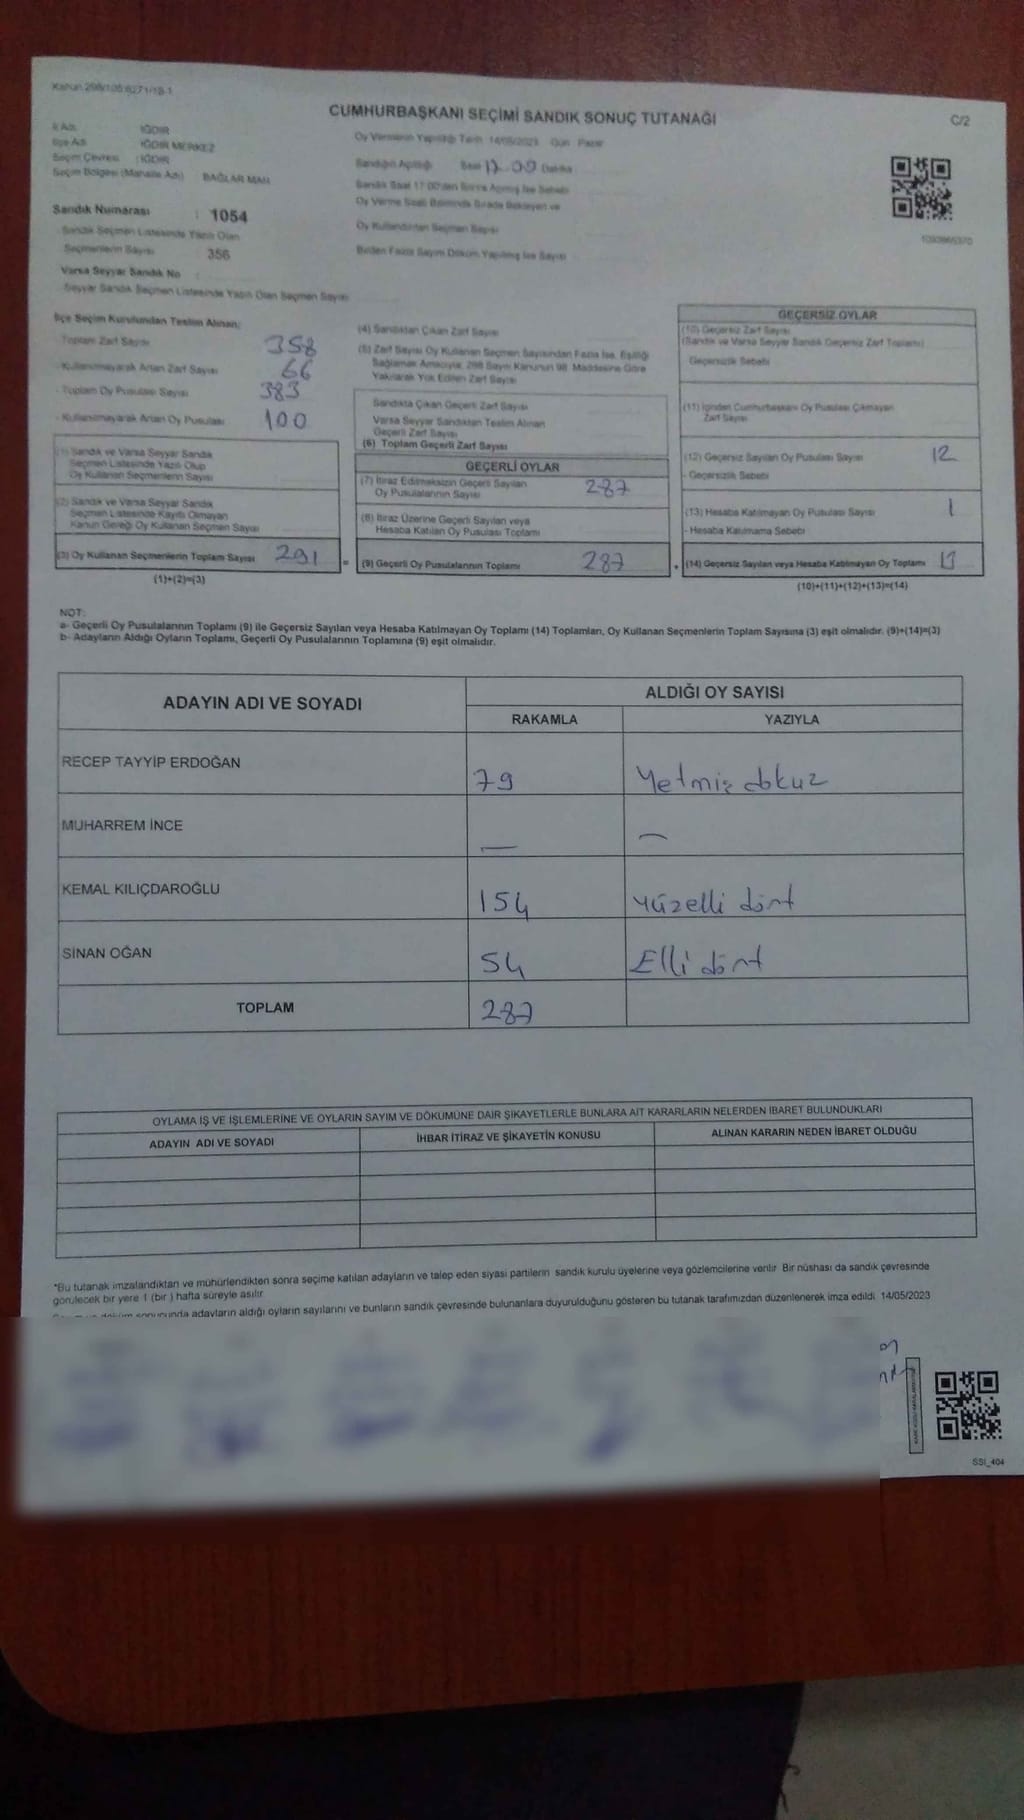 Kanun 298/105 6271/18-1
CUMHURBAŞKANI SEÇİMİ SANDIK SONUÇ TUTANAĞI
C/2
İl Adı IĞDIR
İlçe Adı IĞDIR MERKEZ
Seçim Çevresi : IĞDIR
Seçim Bölgesi (Mahalle Adı) BAĞLAR MAH.
Oy Vermenin Yapıldığı Tarih 14/05/2023 Gün Pazar
Sandığın Açıldığı Saat 17 00 Dakika
Sandık Saat 17.00'den Sonra Açılmış İse Sebebi
Oy Verme Saati Bitiminde Sırada Bekleyen ve
Oy Kullandırılan Seçmen Sayısı
Birden Fazla Sayım Döküm Yapılmış İse Sayısı
Sandık Numarası : 1054
Sandık Seçmen Listesinde Yazılı Olan
Seçmenlerin Sayısı 356
Varsa Seyyar Sandık No
Seyyar Sandık Seçmen Listesinde Yazılı Olan Seçmen Sayısı
İlçe Seçim Kurulundan Teslim Alınan;
Toplam Zarf Sayısı 358
- Kullanılmayarak Artan Zarf Sayısı 66
- Toplam Oy Pusulası Sayısı 383
- Kullanılmayarak Artan Oy Pusulası 100
(1) Sandık ve Varsa Seyyar Sandık
Seçmen Listesinde Yazılı Olup
Oy Kullanan Seçmenlerin Sayısı
(2) Sandık ve Varsa Seyyar Sandık
Seçmen Listesinde Kayıtlı Olmayan
Kanun Gereği Oy Kullanan Seçmen Sayısı
(3) Oy Kullanan Seçmenlerin Toplam Sayısı 291
(1)+(2)=(3)
=
(4) Sandıktan Çıkan Zarf Sayısı
(5) Zarf Sayısı Oy Kullanan Seçmen Sayısından Fazla İse, Eşitliği
Sağlamak Amacıyla; 298 Sayılı Kanunun 98. Maddesine Göre
Yakılarak Yok Edilen Zarf Sayısı
Sandıkta Çıkan Geçerli Zarf Sayısı
Varsa Seyyar Sandıktan Teslim Alınan
Geçerli Zarf Sayısı
(6) Toplam Geçerli Zarf Sayısı
GEÇERLİ OYLAR
(7) İtiraz Edilmeksizin Geçerli Sayılan
Oy Pusulalarının Sayısı 287
(8) İtiraz Üzerine Geçerli Sayılan veya
Hesaba Katılan Oy Pusulası Toplamı
(9) Geçerli Oy Pusulalarının Toplamı 287
GEÇERSİZ OYLAR
(10) Geçersiz Zarf Sayısı
(Sandık ve Varsa Seyyar Sandık Geçersiz Zarf Toplamı)
Geçersizlik Sebebi
(11) İçinden Cumhurbaşkanı Oy Pusulası Çıkmayan
Zarf Sayısı
(12) Geçersiz Sayılan Oy Pusulası Sayısı 12
- Geçersizlik Sebebi
(13) Hesaba Katılmayan Oy Pusulası Sayısı 1
- Hesaba Katılmama Sebebi
(14) Geçersiz Sayılan veya Hesaba Katılmayan Oy Toplamı 13
(10)+(11)+(12)+(13)=(14)
NOT:
a- Geçerli Oy Pusulalarının Toplamı (9) ile Geçersiz Sayılan veya Hesaba Katılmayan Oy Toplamı (14) Toplamları, Oy Kullanan Seçmenlerin Toplam Sayısına (3) eşit olmalıdır. (9)+(14)=(3)
b- Adayların Aldığı Oyların Toplamı, Geçerli Oy Pusulalarının Toplamına (9) eşit olmalıdır.
ADAYIN ADI VE SOYADI ALDIĞI OY SAYISI
RAKAMLA YAZIYLA
RECEP TAYYİP ERDOĞAN 79 Yetmiş dokuz
MUHARREM İNCE — —
KEMAL KILIÇDAROĞLU 154 yüzelli dört
SİNAN OĞAN 54 Elli dört
TOPLAM 287
OYLAMA İŞ VE İŞLEMLERİNE VE OYLARIN SAYIM VE DÖKÜMÜNE DAİR ŞİKAYETLERLE BUNLARA AİT KARARLARIN NELERDEN İBARET BULUNDUKLARI
ADAYIN ADI VE SOYADI İHBAR İTİRAZ VE ŞİKAYETİN KONUSU ALINAN KARARIN NEDEN İBARET OLDUĞU
*Bu tutanak imzalandıktan ve mühürlendikten sonra seçime katılan adayların ve talep eden siyasi partilerin sandık kurulu üyelerine veya gözlemcilerine verilir. Bir nüshası da sandık çevresinde
görülecek bir yere 1 (bir ) hafta süreyle asılır
sonucunda adayların aldığı oyların sayılarını ve bunların sandık çevresinde bulunanlara duyurulduğunu gösteren bu tutanak tarafımızdan düzenlenerek imza edildi. 14/05/2023
SSI_404